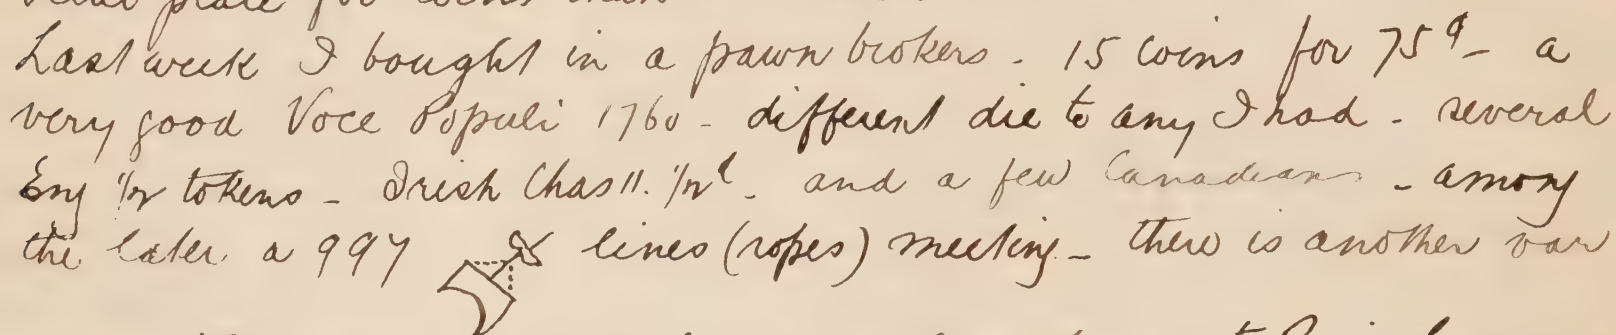 place for coins than
Last week I bought in a pawn brokers - 15 coins for 75¢ - a
very good Voce Populi 1760 - different die to any I had - several
Eng ½ tokens - Irish Chas II. ½ - and a few Canadians - among
the later a 997 lines (ropes) meeting - there is another var